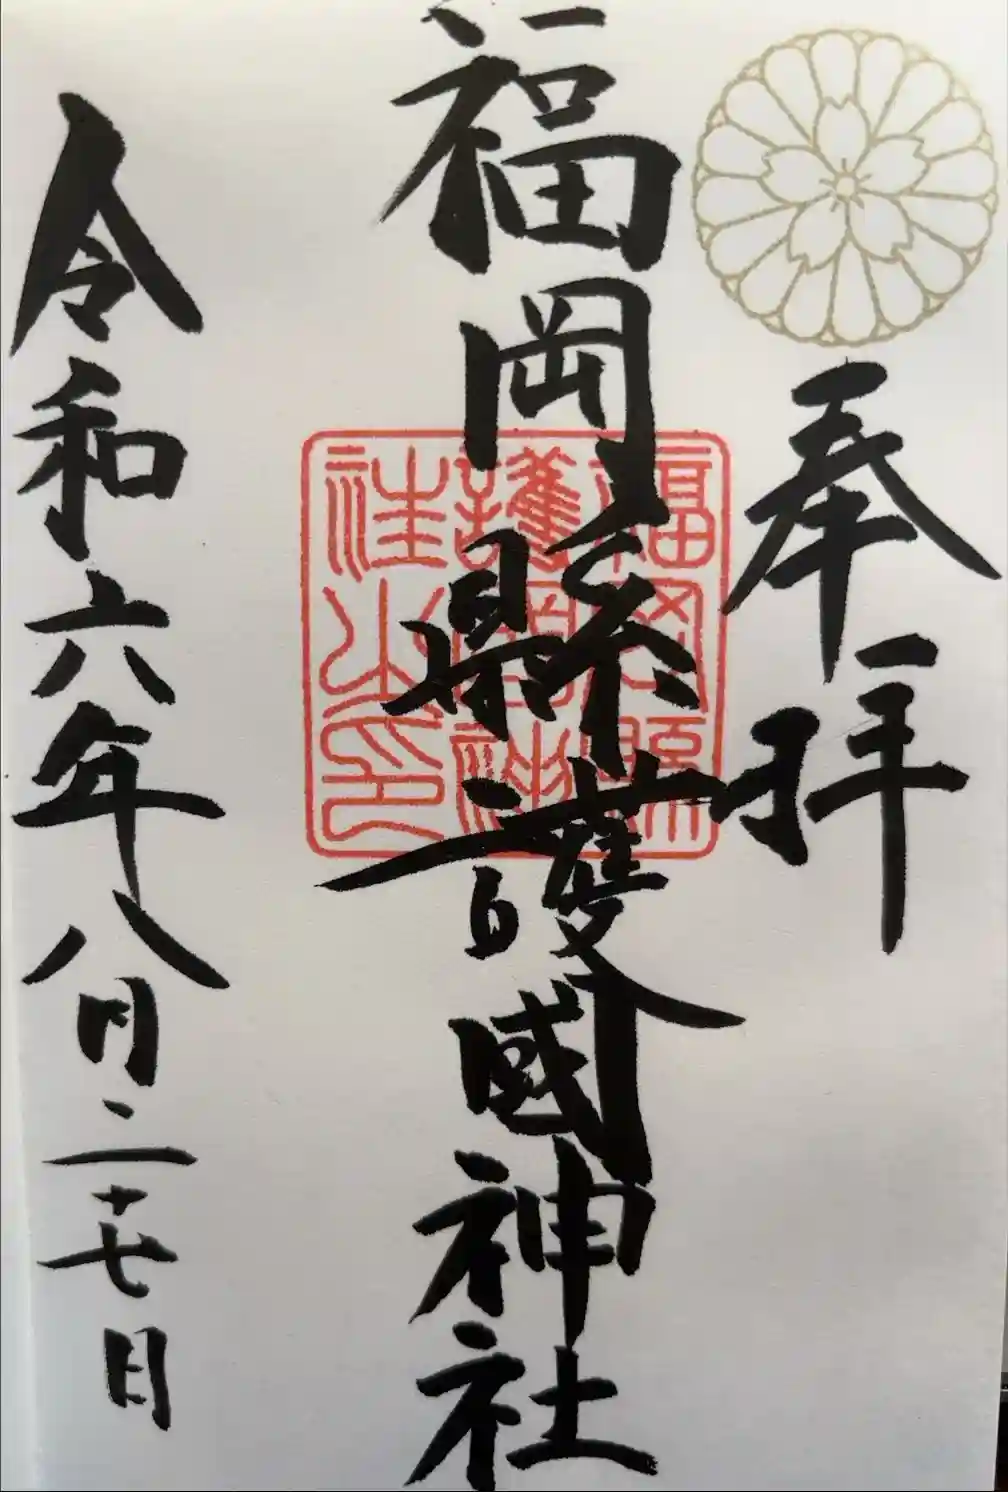 奉拝
福岡縣護國神社
福岡縣
護國神
社之印
令和六年八月二十七日